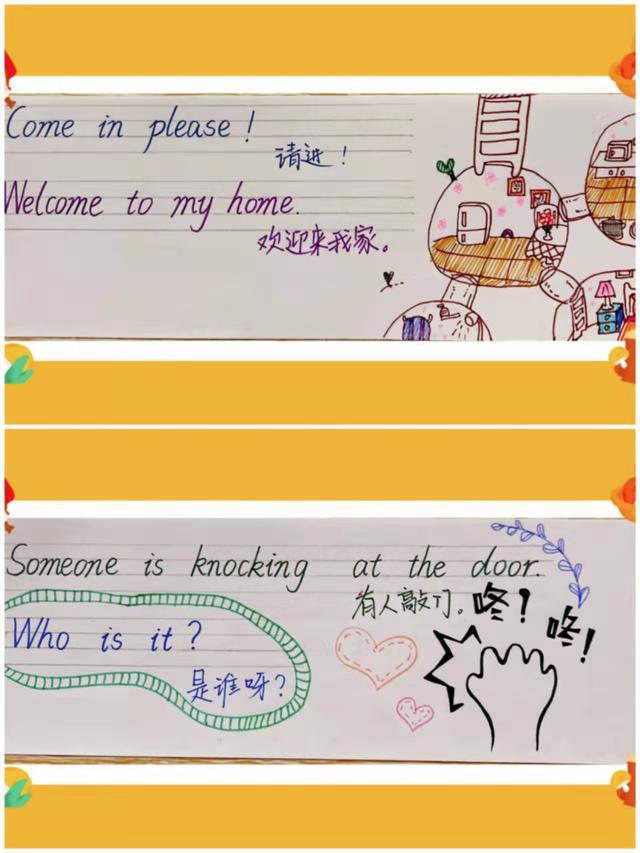 Come in please!
请进！
Welcome to my home.
欢迎来我家。
Someone is knocking at the door.
有人敲门。
咚？
咚！
Who is it?
是谁呀？